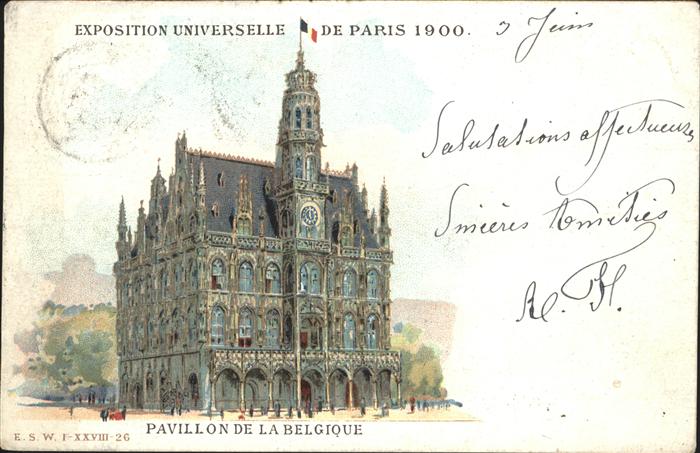 EXPOSITION UNIVERSELLE DE PARIS 1900.
3 Juin
Salutations affectueuses
Sincères Amitiés
H.
E. S. W. I-XXVIII-26
PAVILLON DE LA BELGIQUE